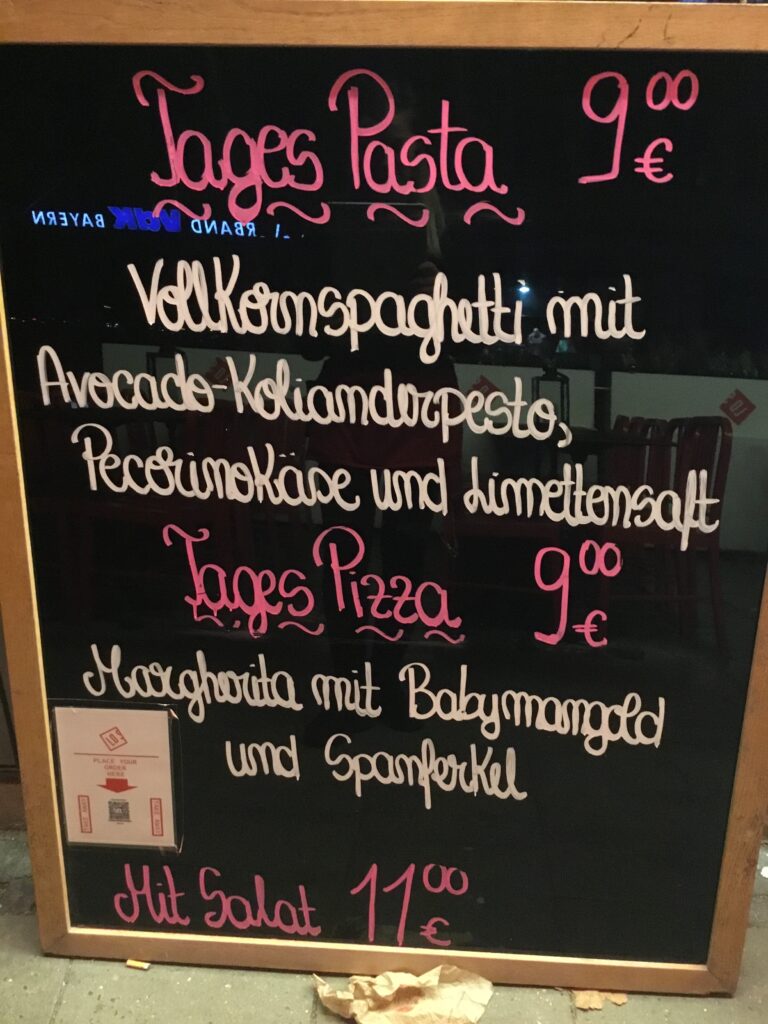 Tages Pasta 9⁰⁰ €
VollKornspaghetti mit
Avocado-Kolianderpesto,
PecorinoKäse und Limettensaft
Tages Pizza 9⁰⁰ €
Margherita mit Babymangold
und SpanferKel
PLACE YOUR
ORDER
HERE
Mit Salat 11⁰⁰ €
RBAND VdK BAYERN